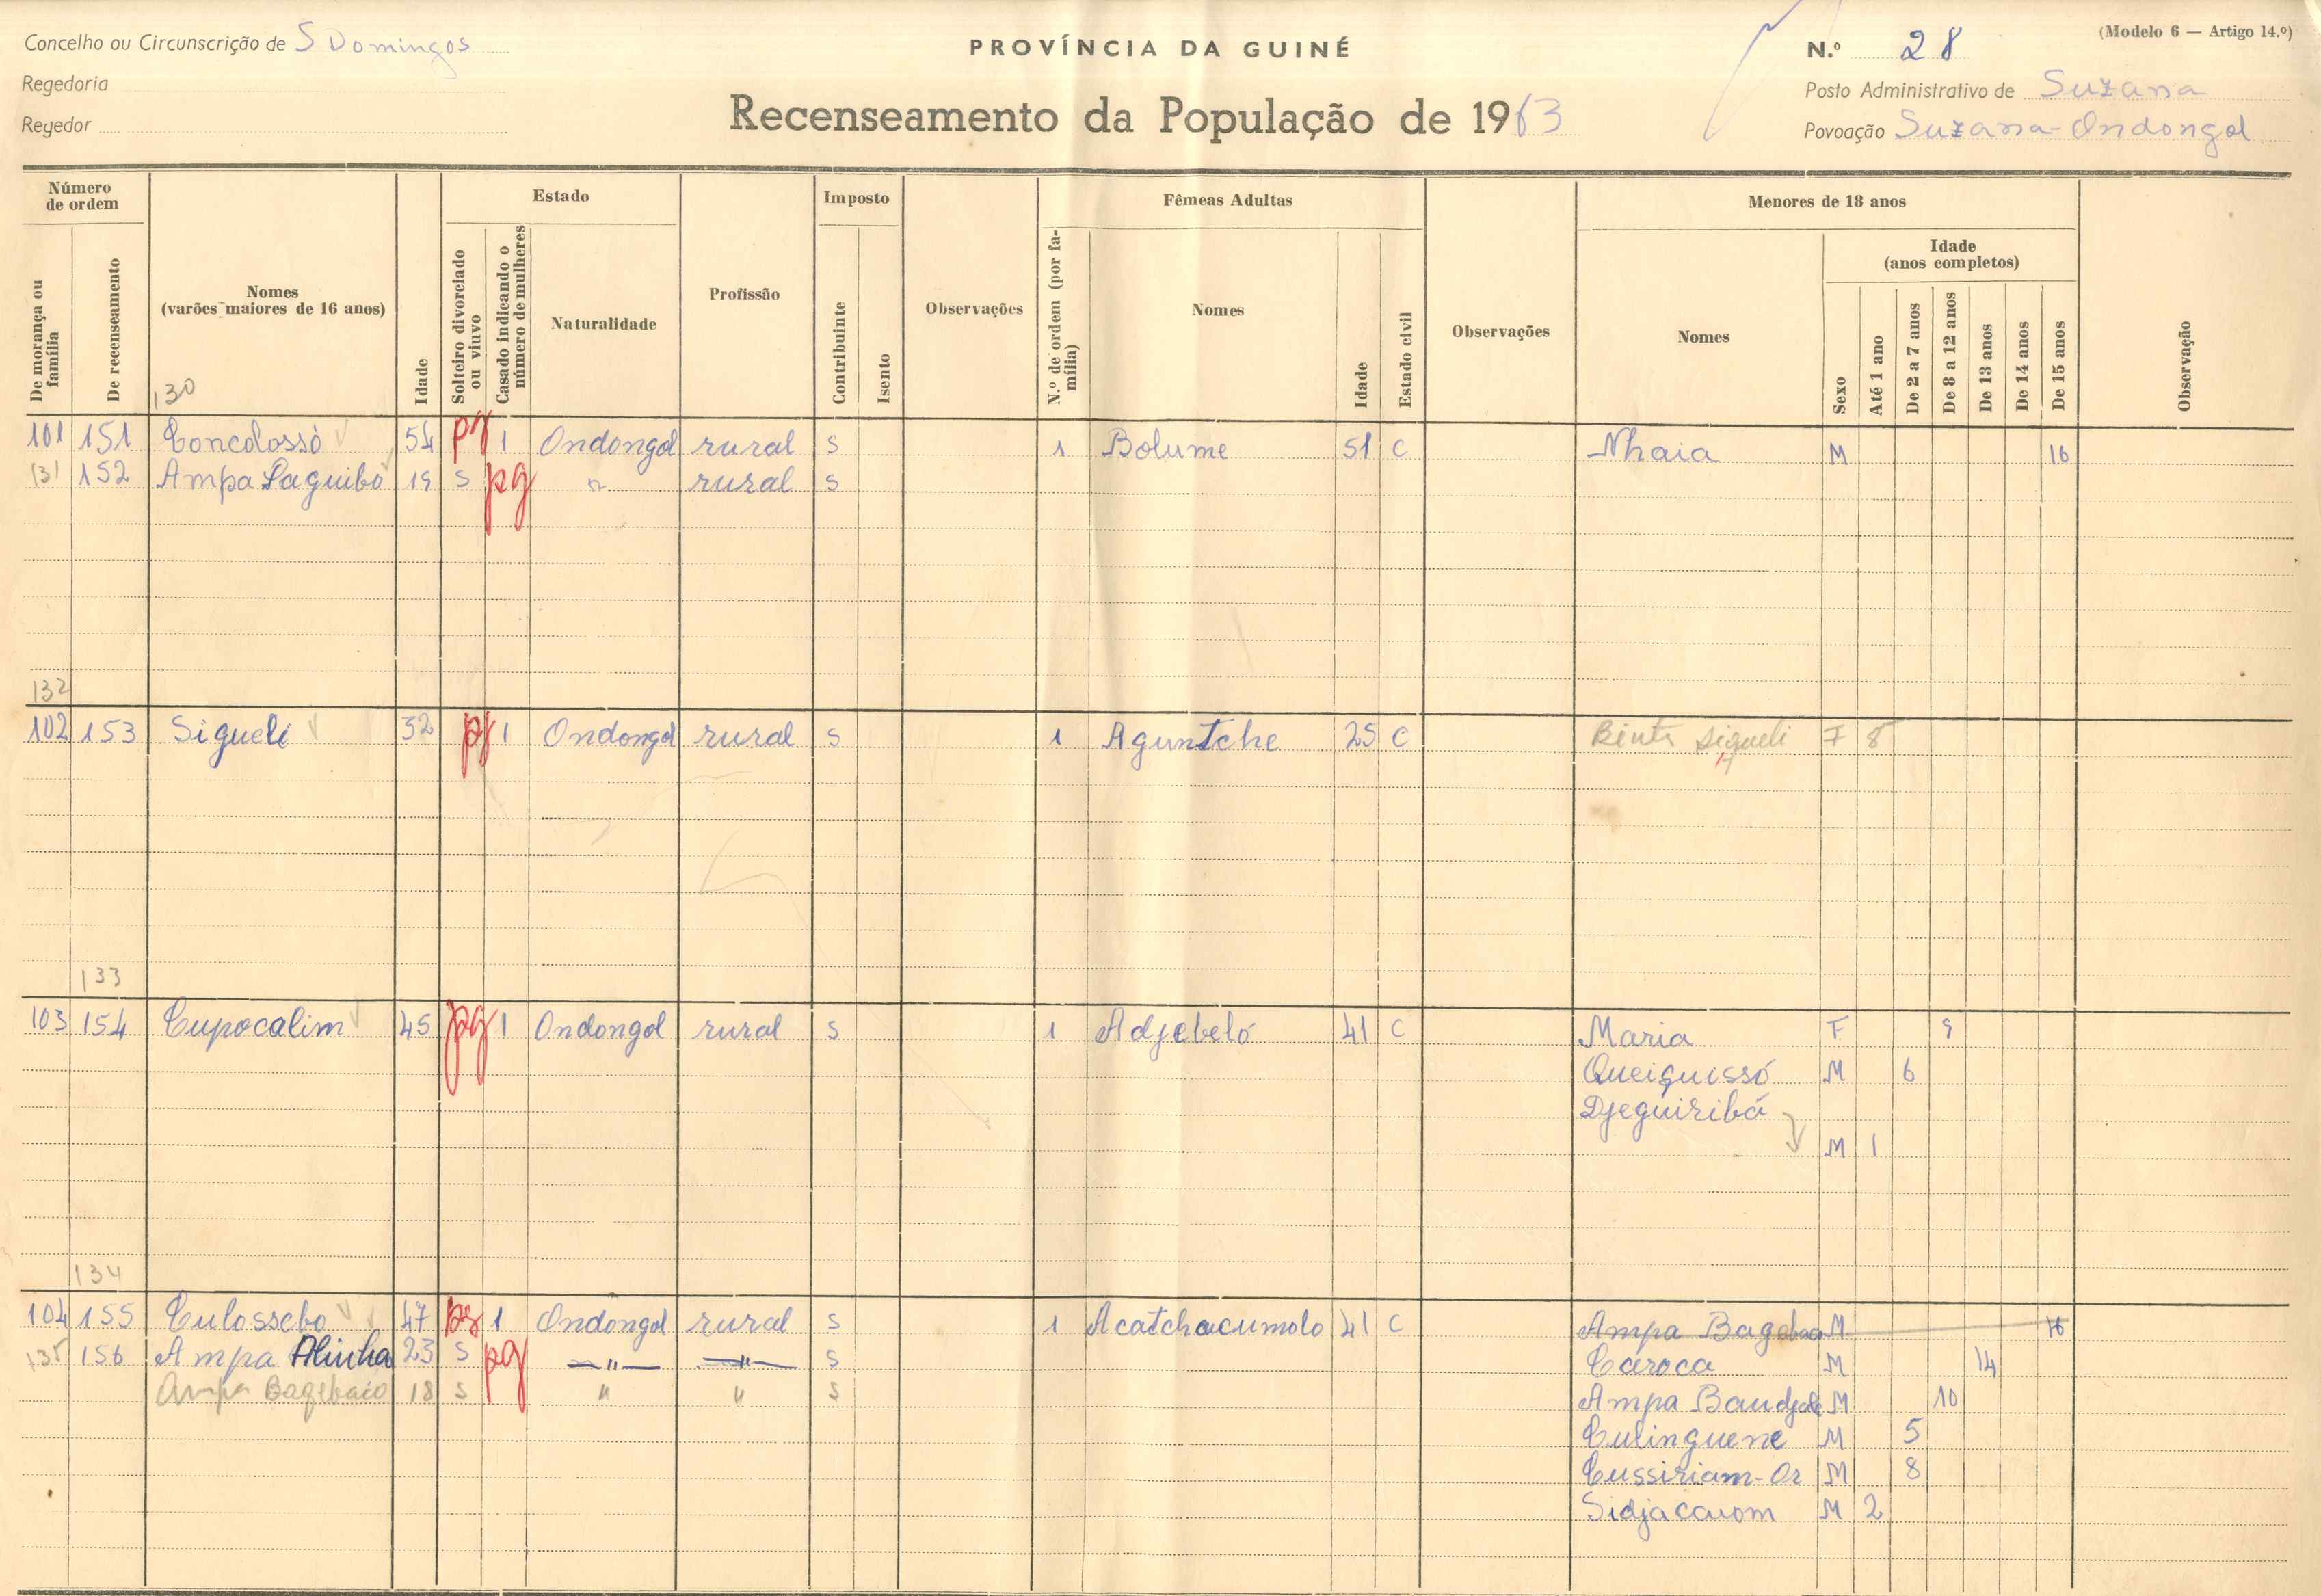 Concelho ou Circunscrição de S Domingos
Regedoria
Regedor
PROVÍNCIA DA GUINÉ
Recenseamento da População de 1963
(Modelo 6 — Artigo 14.º)
N.º 28
Posto Administrativo de Suzana
Povoação Suzana-Ondongol
Número de ordem
De morança ou família
De recenseamento
Nomes
(varões maiores de 16 anos)
Idade
Estado
Solteiro divorciado ou viuvo
Casado indicando o número de mulheres
Naturalidade
Profissão
Imposto
Contribuinte
Isento
Observações
Fêmeas Adultas
N.º de ordem (por família)
Nomes
Idade
Estado civil
Observações
Menores de 18 anos
Nomes
Sexo
Idade
(anos completos)
Até 1 ano
De 2 a 7 anos
De 8 a 12 anos
De 13 anos
De 14 anos
De 15 anos
Observação
130
101 151 Concolossò 54 pg 1 Ondongol rural S 1 Bolume 51 C Nhaia M 16
131 152 Ampa Saguibò 19 S pg " rural S
132
102 153 Sigueli 32 pg 1 Ondongol rural S 1 Aguntche 25 C Binta Sigueli F 8
133
103 154 Cupocalim 45 pg 1 Ondongol rural S 1 Adjebeló 41 C Maria F 9
Queiquissó M 6
Djeguiribá
M 1
134
104 155 Culossebo 47 pg 1 Ondongol rural S 1 Acatchacumolo 41 C Ampa M 16
135 156 Ampa Alinha 23 S pg —"— —"— S Caroca M 14
Ampa Bagebaio 18 S " " S Ampa Baudjale M 10
Culinguene M 5
Cussiriam-Or M 8
Sidjacauom M 2